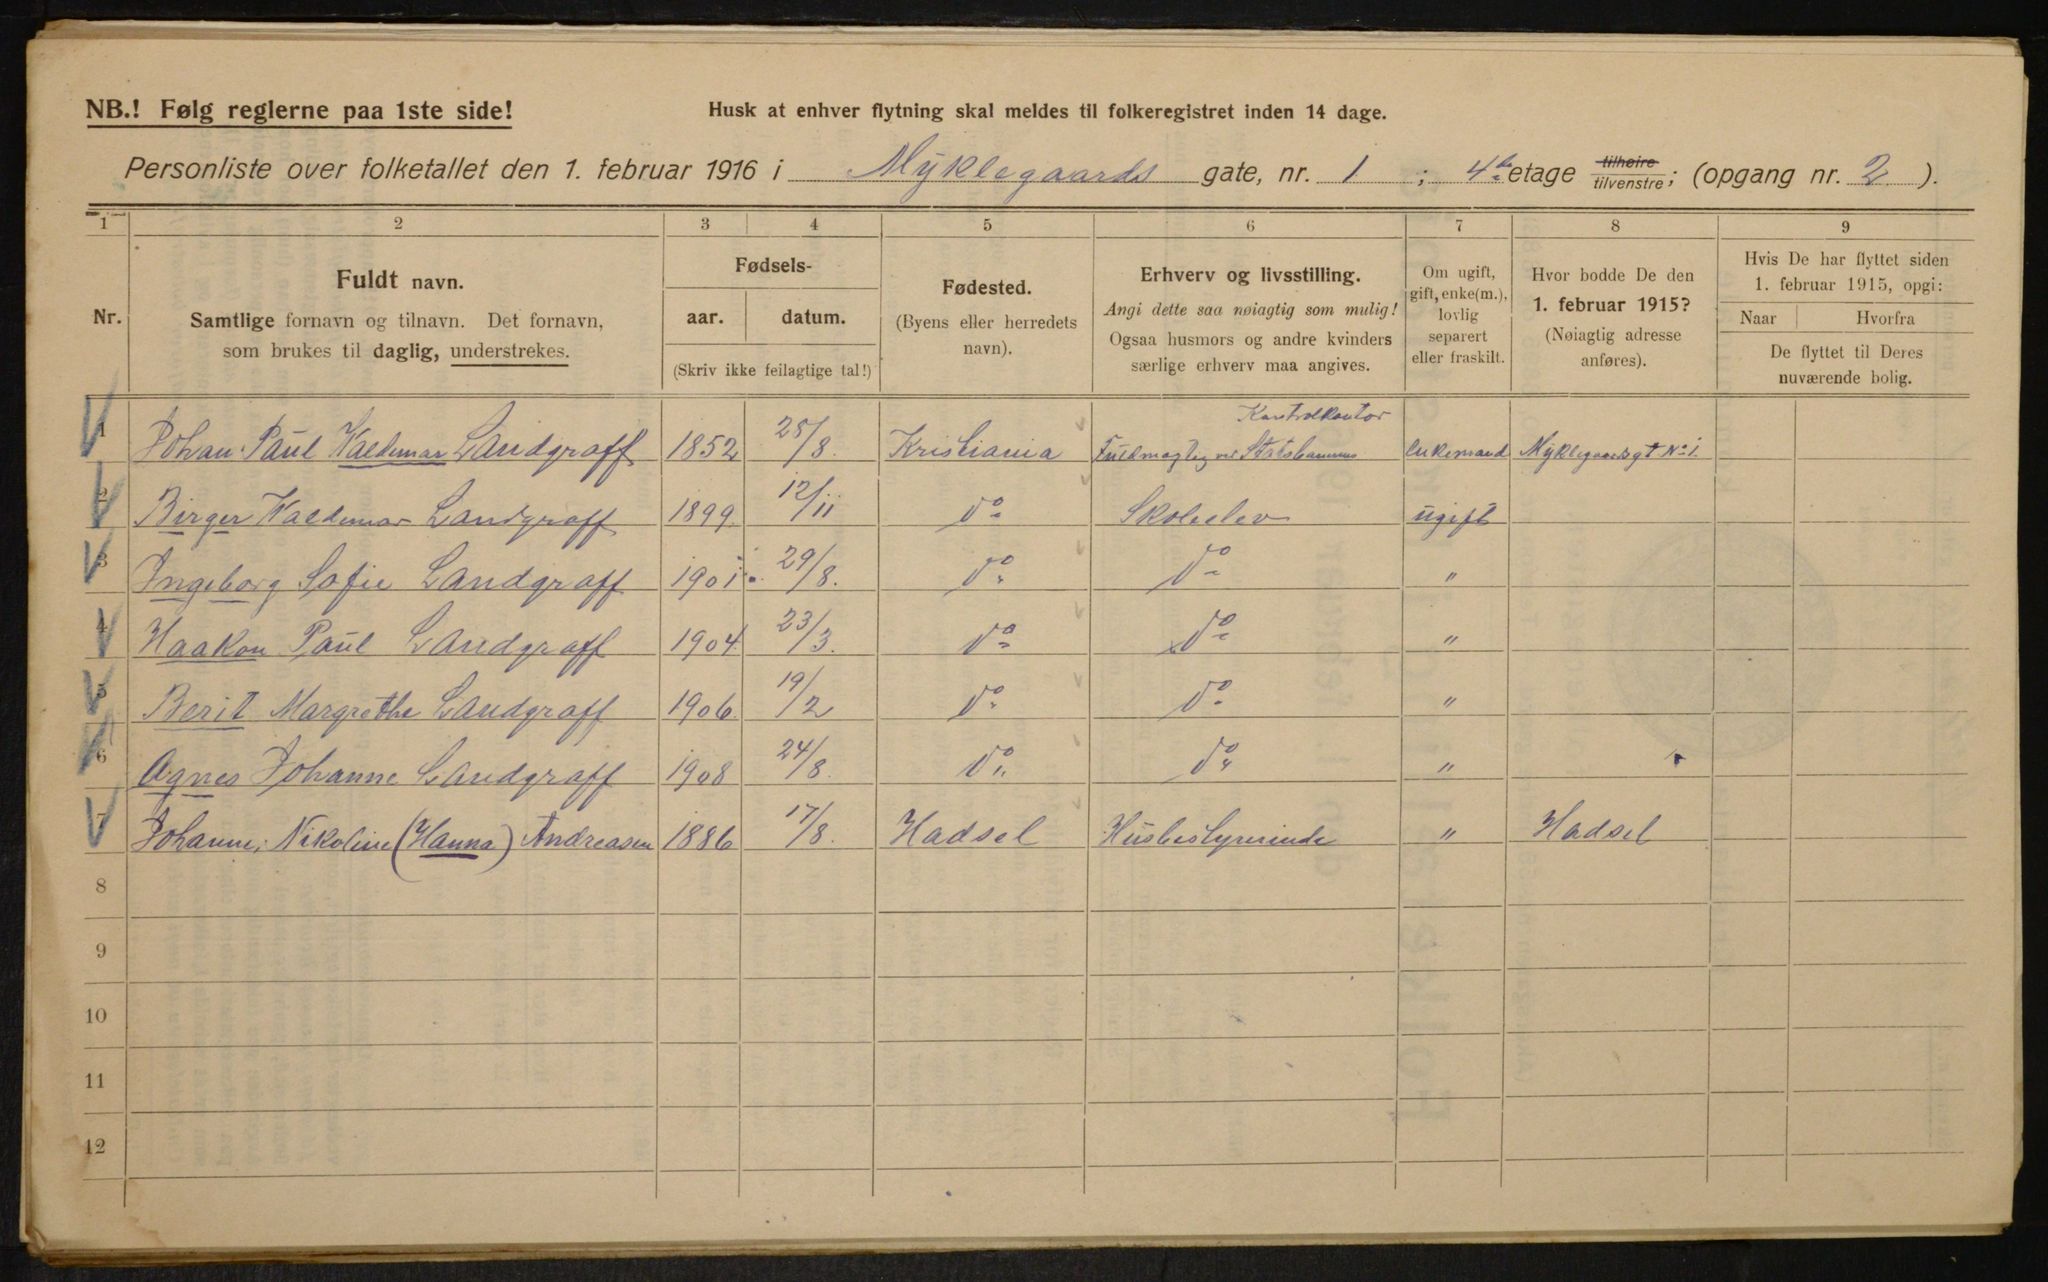 NB.! Følg reglerne paa 1ste side!
Husk at enhver flytning skal meldes til folkeregistret inden 14 dage.
Personliste over folketallet den 1. februar 1916 i Myklegaards gate, nr. 1 ; 4de etage tilhøire tilvenstre; (opgang nr. 2 ).
1 2 3 4 5 6 7 8 9
Nr.
Fuldt navn.
Samtlige fornavn og tilnavn. Det fornavn,
som brukes til daglig, understrekes.
Fødsels-
aar. datum.
(Skriv ikke feilagtige tal!)
Fødested.
(Byens eller herredets
navn).
Erhverv og livsstilling.
Angi dette saa nøiagtig som mulig!
Ogsaa husmors og andre kvinders
særlige erhverv maa angives.
Om ugift,
gift, enke(m.),
lovlig
separert
eller fraskilt.
Hvor bodde De den
1. februar 1915?
(Nøiagtig adresse
anføres).
Hvis De har flyttet siden
1. februar 1915, opgi:
Naar Hvorfra
De flyttet til Deres
nuværende bolig.
Kontrolkontor
1 Johan Paul Waldemar Landgraff 1852 28/8. Kristiania Fuldmægtig ved Statsbanernes Enkemand Myklegaardsgt No 1.
2 Birger Waldemar Landgraff 1899 12/11 do Skoleelev ugift
3 Ingeborg Sofie Landgraff 1901. 29/8. do do "
4 Haakon Paul Landgraff 1904 23/3. do do "
5 Berit Margrethe Landgraff 1906. 19/2 do do "
6 Agnes Johanne Landgraff 1908 24/8. do do "
7 Johanne Nikoline (Hanna) Andreasen 1886 17/8. Hadsel Husbestyrerinde " Hadsel
8
9
10
11
12